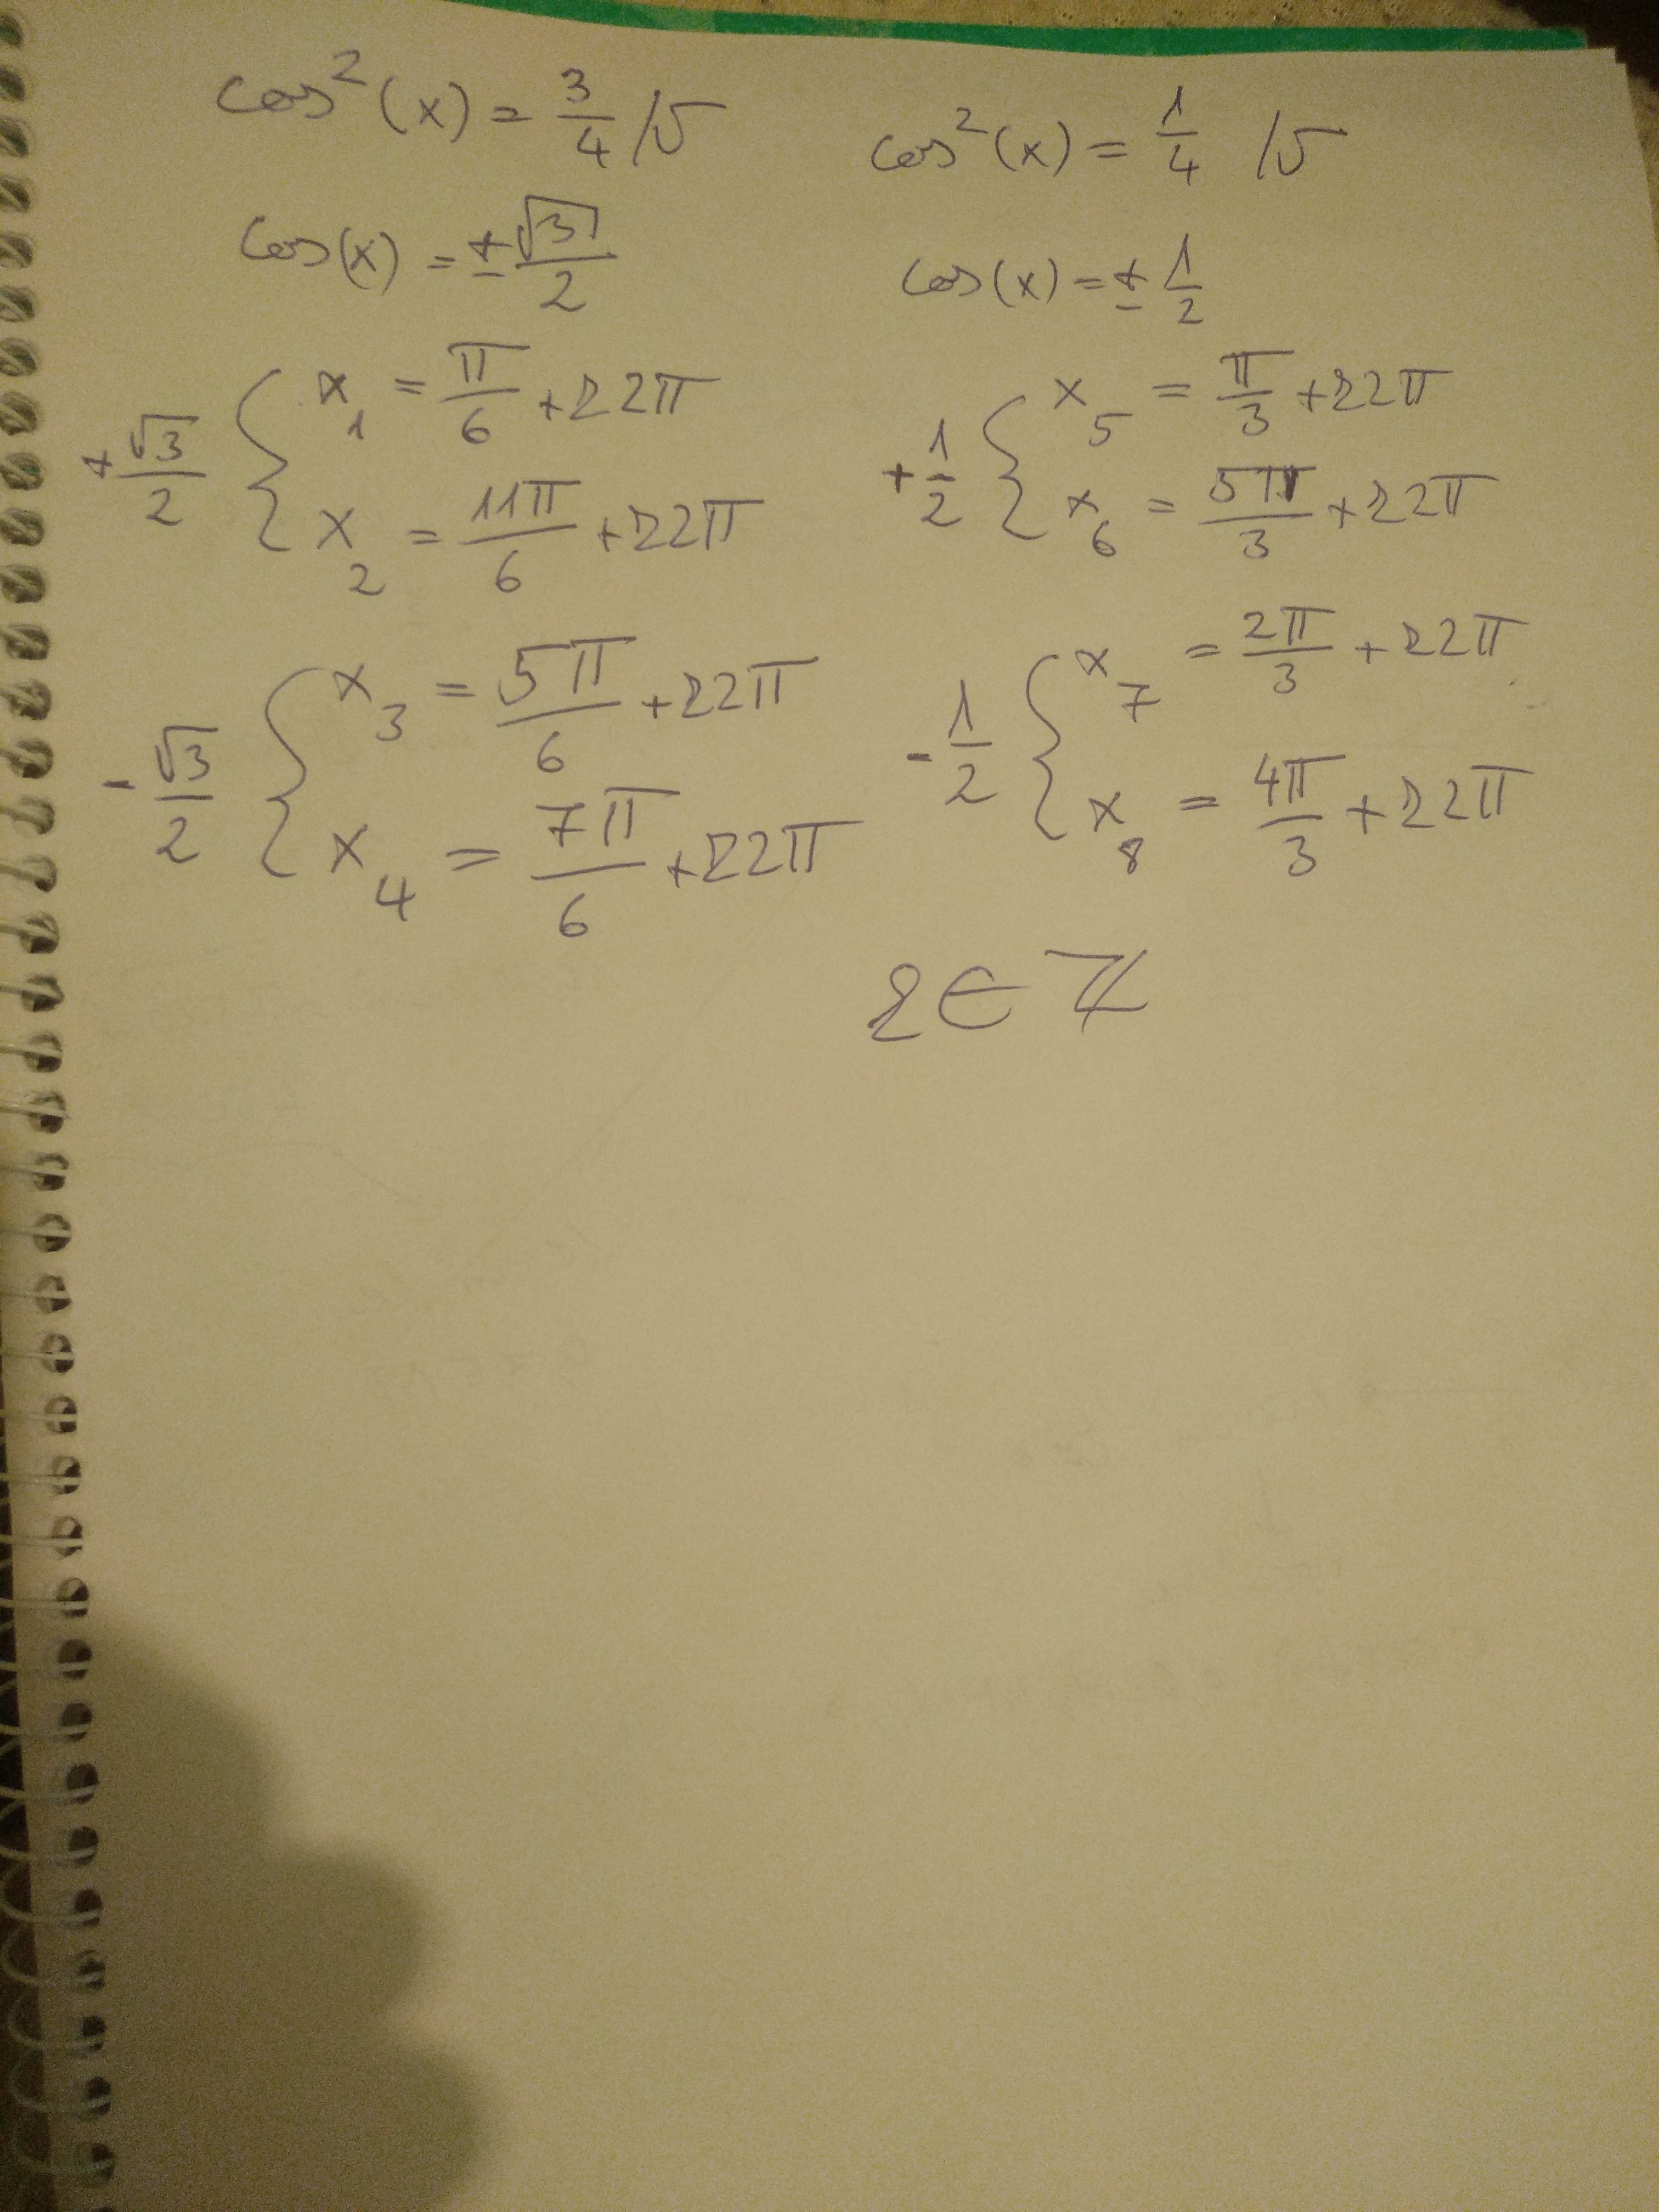 cos²(x) = 3/4 /√
cos(x) = ±√3/2
+√3/2 { x₁ = π/6 + k2π
x₂ = 11π/6 + k2π
-√3/2 { x₃ = 5π/6 + k2π
x₄ = 7π/6 + k2π
cos²(x) = 1/4 /√
cos(x) = ± 1/2
+1/2 { x₅ = π/3 + k2π
x₆ = 5π/3 + k2π
-1/2 { x₇ = 2π/3 + k2π
x₈ = 4π/3 + k2π
k ∈ ℤ